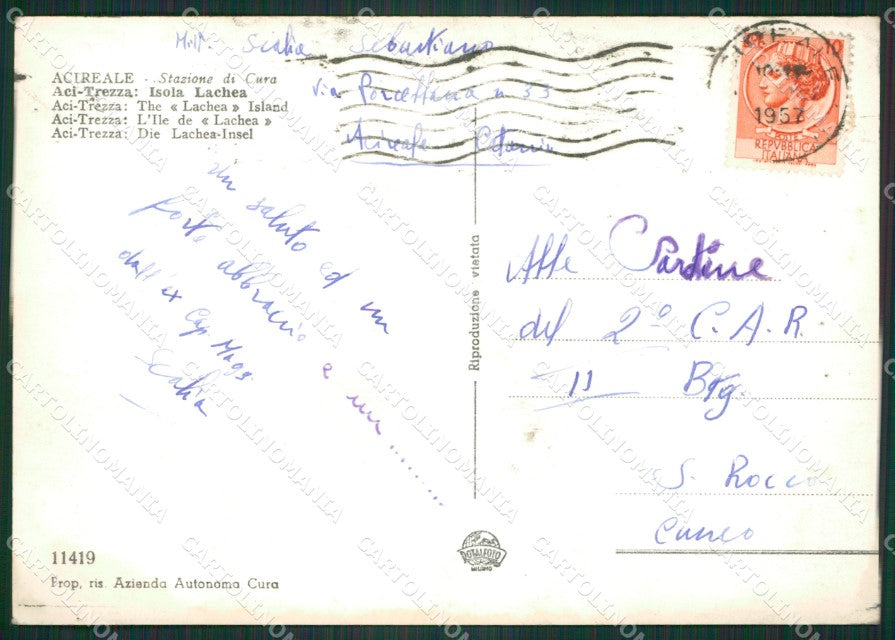 Mitt. Scalia Sebastiano
Via n 33
Acireale Catania
ACIREALE - Stazione di Cura
Aci-Trezza: Isola Lachea
Aci-Trezza: The « Lachea » Island
Aci-Trezza: L'Ile de « Lachea »
Aci-Trezza: Die Lachea-Insel
1957
POSTE
REPVBBLICA
ITALIANA
un saluto ed un
forte abbraccio e un..........
dall'ex Cap. Magg.
Scalia
Riproduzione vietata
Alle
del 2º C.A.R.
11 Btg.
S. Rocco
Cuneo
11419
Prop. ris. Azienda Autonoma Cura
ROTALFOTO
MILANO
CARTOLINOMANIA